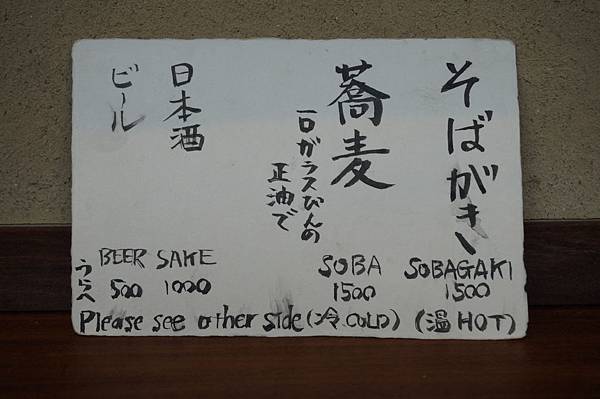 そばがき
蕎麦
一口ガラスびんの
正油で
日本酒
ビール
SOBAGAKI
1500
(温 HOT)
SOBA
1500
(冷 COLD)
SAKE
1000
BEER
500
うらへ
Please see other side